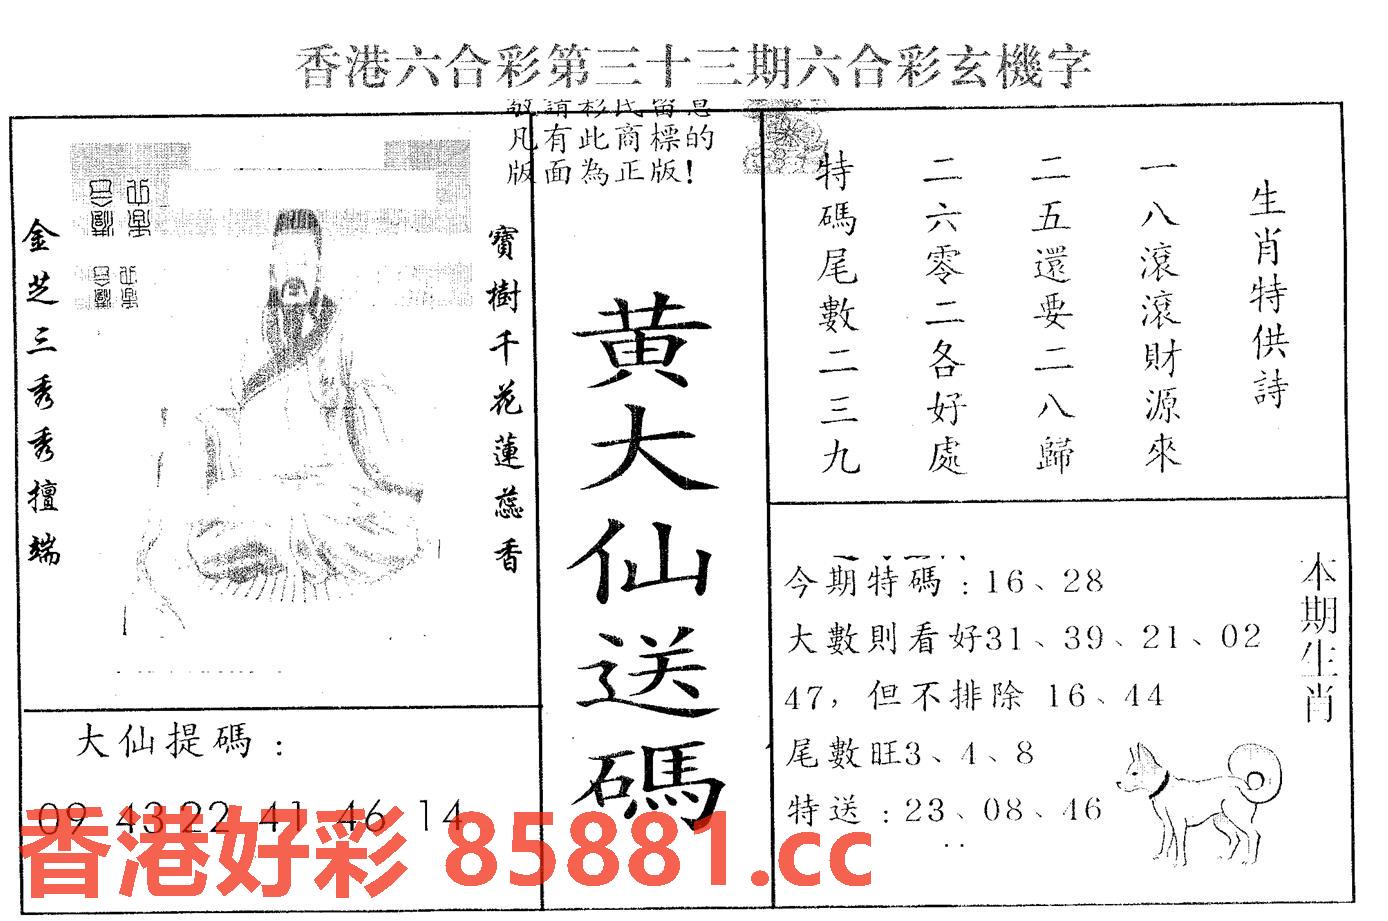 香港六合彩第三十三期六合彩玄機字
敬請彩民留意
凡有此商標的
版面為正版!
生肖特供詩
一八滾滾財源來
二五還要二八歸
二六零二各好處
特碼尾數二三九
黃大仙送碼
寶樹千花蓮蕊香
金芝三秀秀擅端
大仙提碼：
09 43 22 41 46 14
本期生肖
今期特碼：16、28
大數則看好31、39、21、02
47，但不排除 16、44
尾數旺3、4、8
特送：23、08、46
香港好彩 85881.cc